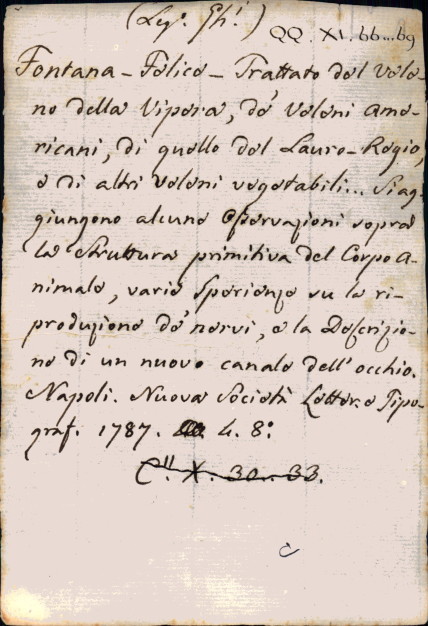 (Leg.e Gh.i) QQ. XI. 66...69
Fontana - Felice - Trattato del Vele-
no della Vipera, de' Veleni Ame-
ricani, di quello del Lauro-Regio,
e di altri Veleni vegetabili... Si ag-
giungono alcune Osservazioni sopra
la struttura primitiva del Corpo A-
nimale, varie Sperienze su la ri-
produzione de' nervi, e la Descrizio-
ne di un nuovo canale dell'occhio.
Napoli. Nuova Società Letter. e Tipo-
graf. 1787. 4. 8.o
C." X. 30..33.
C